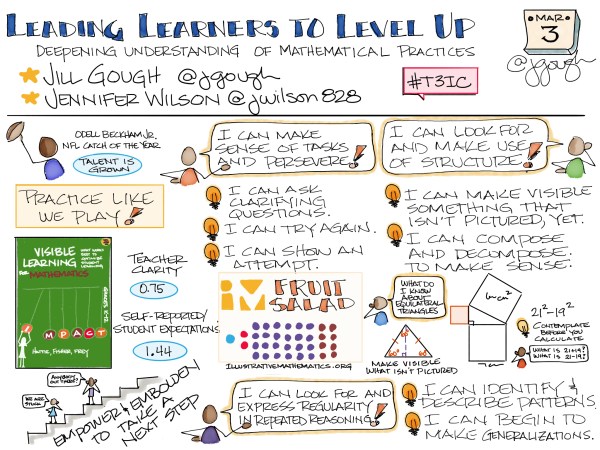 LEADING LEARNERS TO LEVEL UP
DEEPENING UNDERSTANDING OF MATHEMATICAL PRACTICES
JILL GOUGH @jgough
JENNIFER WILSON @jwilson828
#T3IC
MAR
3
@jgough
ODELL BECKHAM JR.
NFL CATCH OF THE YEAR
TALENT IS
GROWN
PRACTICE LIKE
WE PLAY!
I CAN MAKE
SENSE OF TASKS
AND PERSEVERE!
I CAN ASK
CLARIFYING
QUESTIONS.
I CAN TRY AGAIN.
I CAN SHOW AN
ATTEMPT.
I CAN LOOK FOR
AND MAKE USE
OF STRUCTURE!
I CAN MAKE VISIBLE
SOMETHING THAT
ISN'T PICTURED, YET.
I CAN COMPOSE
AND DECOMPOSE
TO MAKE SENSE.
VISIBLE
LEARNING
FOR MATHEMATICS
WHAT WORKS
BEST TO
OPTIMIZE
STUDENT
LEARNING
GRADES K-12
IMPACT
HATTIE, FISHER, FREY
TEACHER
CLARITY
0.75
SELF-REPORTED/
STUDENT EXPECTATIONS
1.44
IM
FRUIT
SALAD
ILLUSTRATIVEMATHEMATICS.ORG
WHAT DO
I KNOW
ABOUT
EQUILATERAL
TRIANGLES
MAKE VISIBLE
WHAT ISN'T PICTURED
21²-19²
CONTEMPLATE
BEFORE YOU
CALCULATE
WHAT IS 21+19?
WHAT IS 21-19?
ANYBODY
OUT THERE?
WE ARE
STUCK
EMPOWER & EMBOLDEN
TO TAKE A
NEXT STEP
I CAN LOOK FOR AND
EXPRESS REGULARITY
IN REPEATED REASONING!
I CAN IDENTIFY &
DESCRIBE PATTERNS.
I CAN BEGIN TO
MAKE GENERALIZATIONS.